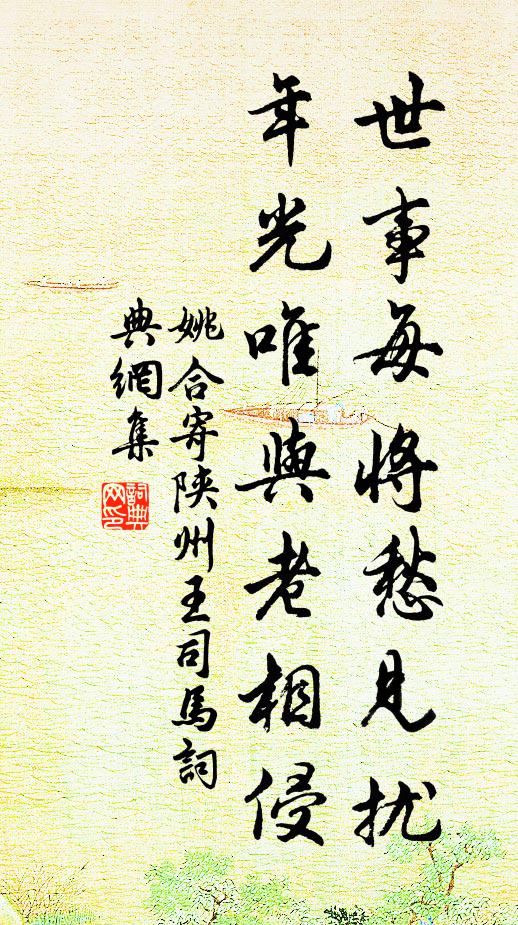 世事每將愁見扰
年光唯與老相侵
姚合寄陝州王司馬詞
典網集
詞典
网印